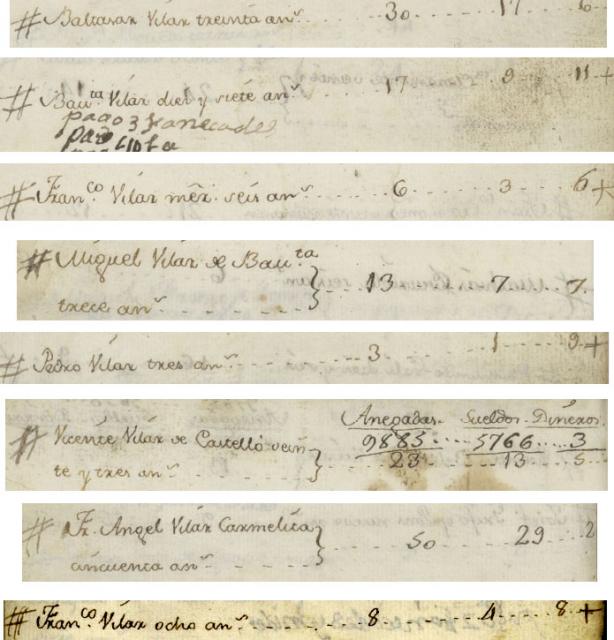 # Baltasar Vilar treinta an.s 30 17 6
# Bau.ta Vilar diez y siete an.s 17 9 11 +
pago 3 hanecades
# Fran.co Vilar mẽr. seis an.s 6 3 6 +
# Miguel Vilar de Bau.ta
trece an.s 13 7 7
# Pedro Vilar tres an.s 3 1 9 +
Anegadas. Sueldos. Dineros.
9883 5766 3
# Vicente Vilar de Castelló vein
te y tres an.s 23 13 5
# Fr. Angel Vilar Carmelita
cincuenta an.s 50 29 2
# Fran.co Vilar ocho an.s 8 4 8 +